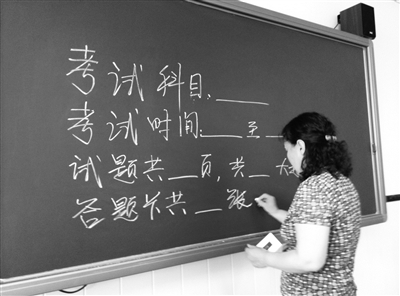 考试科目:____
考试时间:____至__
试题共__页,共__大
答题卡共__张